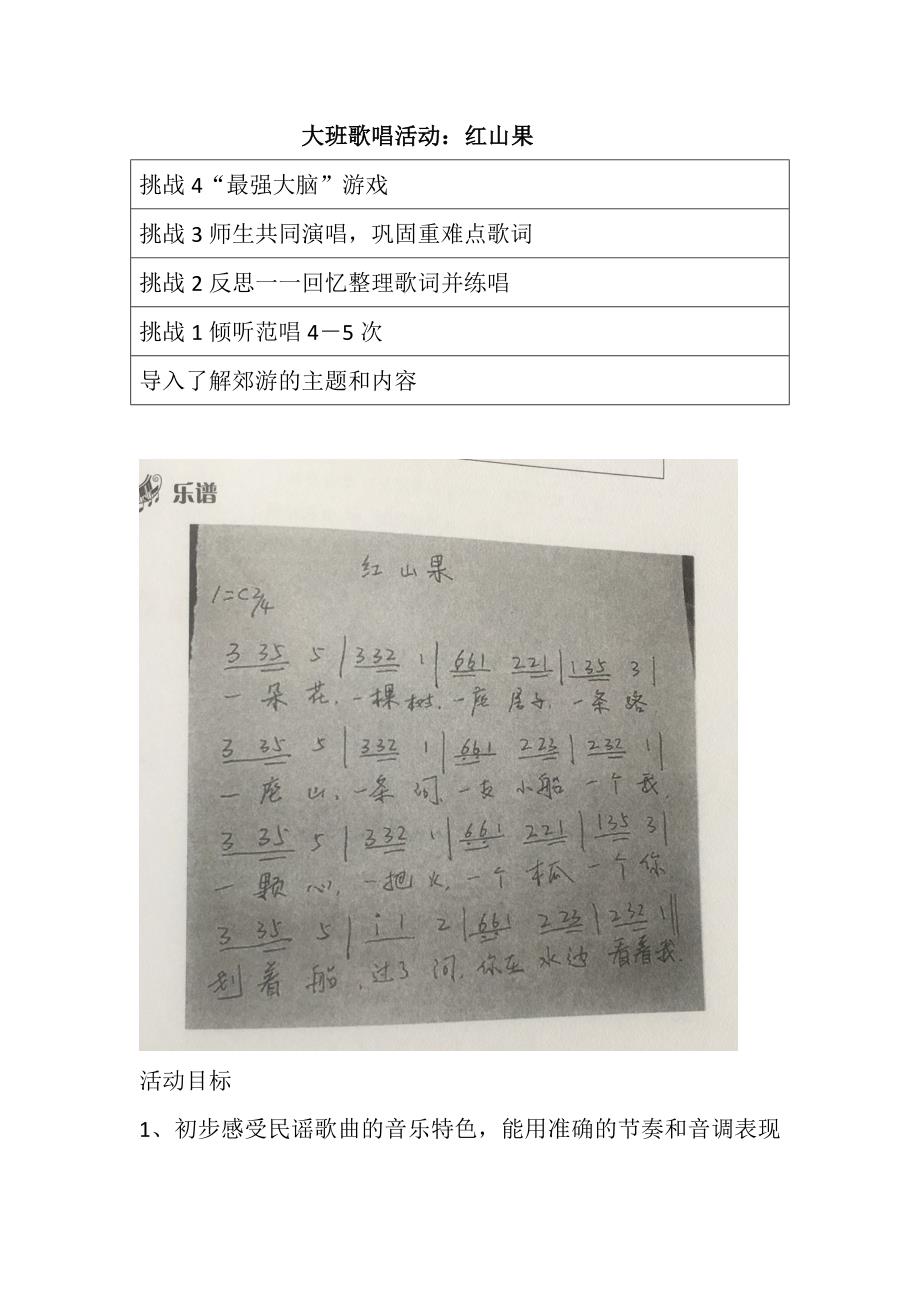 大班歌唱活动：红山果
挑战 4“最强大脑”游戏
挑战 3 师生共同演唱，巩固重难点歌词
挑战 2 反思一一回忆整理歌词并练唱
挑战 1 倾听范唱 4－5 次
导入了解郊游的主题和内容
乐谱
红山果
1=C 2/4
3 35 5 | 332 1 | 661 221 | 135 3 |
一朵花,一棵树,一座房子,一条路
3 35 5 | 332 1 | 661 223 | 232 1 |
一座山,一条河,一支小船一个我,
3 35 5 | 332 1 | 661 221 | 135 3 |
一颗心,一把火,一个木瓜一个你
3 35 5 | i 1 2 | 661 223 | 232 1 ‖
划着船,过了河,你在水边看着我.
活动目标
1、初步感受民谣歌曲的音乐特色，能用准确的节奏和音调表现